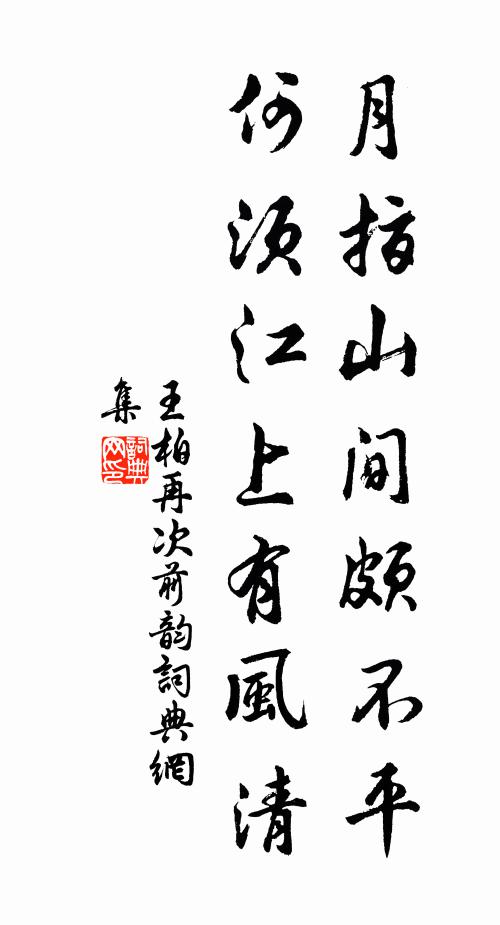 月指山間頗不平
何須江上有風清
王柏再次前韵詞典網
集
詞典
网印